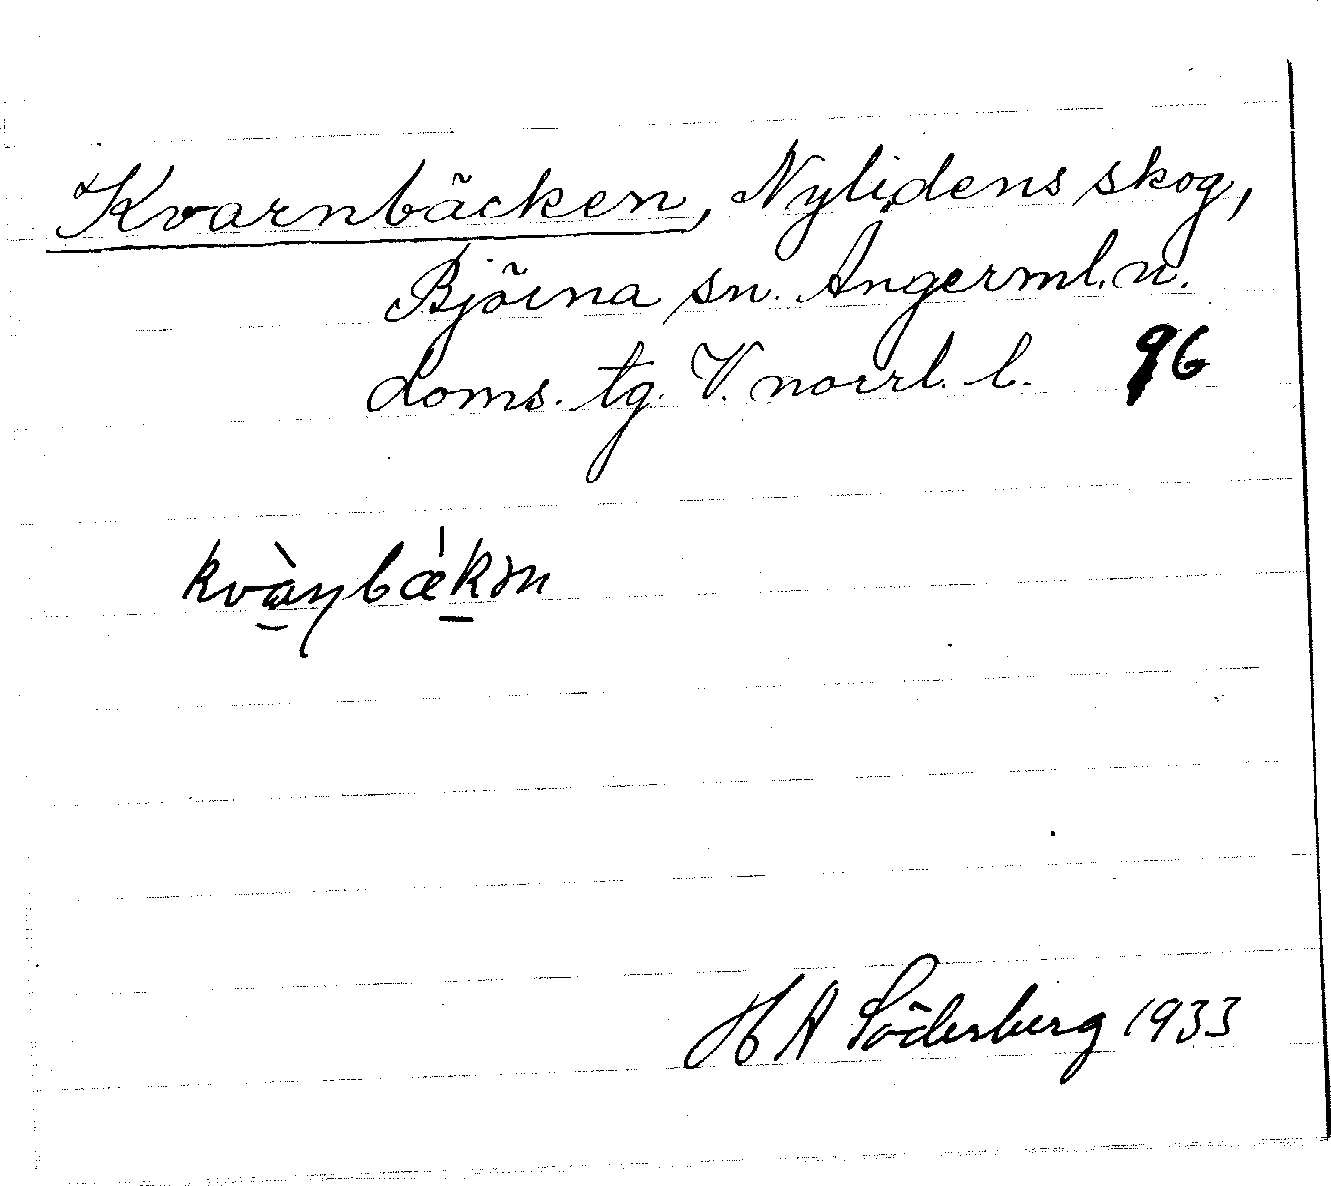 Kvarnbäcken, Nylidens skog,
Björna sn. Ångerml. n.
doms. tg. V. norrl. l. 96
kvànbǽkən
H A Söderberg 1933